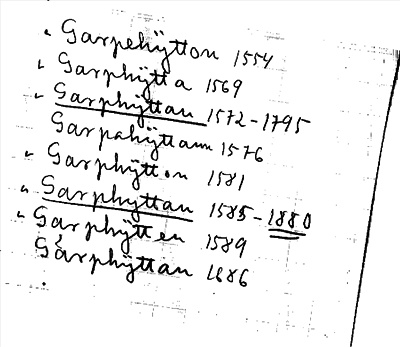 " Garpehÿtton 1554
" Garphÿtta 1569
" Garphÿttan 1572-1795
Garpahÿttann 1576
" Garphÿtton 1581
" Garphÿttan 1585-1880
" Garphÿtten 1589
Garphÿttan 1686